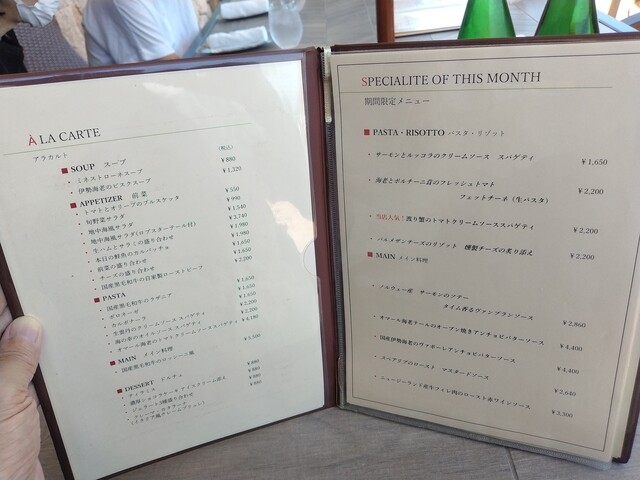 À LA CARTE
アラカルト
(税込)
■ SOUP スープ
• ミネストローネスープ ¥880
• 伊勢海老のビスクスープ ¥1,320
■ APPETIZER 前菜
• トマトとオリーブのブルスケッタ ¥550
• 旬野菜サラダ ¥990
• 地中海風サラダ ¥1,540
• 地中海風サラダ(ロブスターテール付) ¥3,740
• 生ハムとサラミの盛り合わせ ¥1,980
• 本日の鮮魚のカルパッチョ ¥1,980
• 前菜の盛り合わせ ¥1,650
• チーズの盛り合わせ ¥1,650
• 国産黒毛和牛の自家製ローストビーフ ¥2,200
■ PASTA
• 国産黒毛和牛のラザニア ¥1,650
• ボロネーゼ ¥1,650
• カルボナーラ ¥1,650
• 生雲丹のクリームソース スパゲティ ¥2,200
• 海の幸のオイルソース スパゲティ ¥2,200
• オマール海老のトマトクリームソーススパゲティ ¥4,180
■ MAIN メイン料理
• 国産黒毛和牛のロッシーニ風 ¥5,500
■ DESSERT ドルチェ
• ティラミス ¥880
• 濃厚ショコラケーキ アイスクリーム添え ¥880
• ジェラート3種盛り合わせ ¥880
• クレマカタラーナ ¥880
(イタリア風クレームブリュレ)
SPECIALITE OF THIS MONTH
期間限定メニュー
■ PASTA・RISOTTO パスタ・リゾット
• サーモンとルッコラのクリームソース スパゲティ ¥1,650
• 海老とポルチーニ茸のフレッシュトマト
フェットチーネ(生パスタ) ¥2,200
• 当店人気!渡り蟹のトマトクリームソーススパゲティ ¥2,200
• パルメザンチーズのリゾット 燻製チーズの炙り添え ¥2,200
■ MAIN メイン料理
• ノルウェー産 サーモンのソテー
タイム香るヴァンブランソース ¥2,860
• オマール海老テールのオーブン焼きアンチョビバターソース ¥4,400
• 国産伊勢海老のヴァポーレアンチョビバターソース ¥4,400
• スペアリブのロースト マスタードソース ¥2,640
• ニュージーランド産牛フィレ肉のロースト赤ワインソース ¥3,300